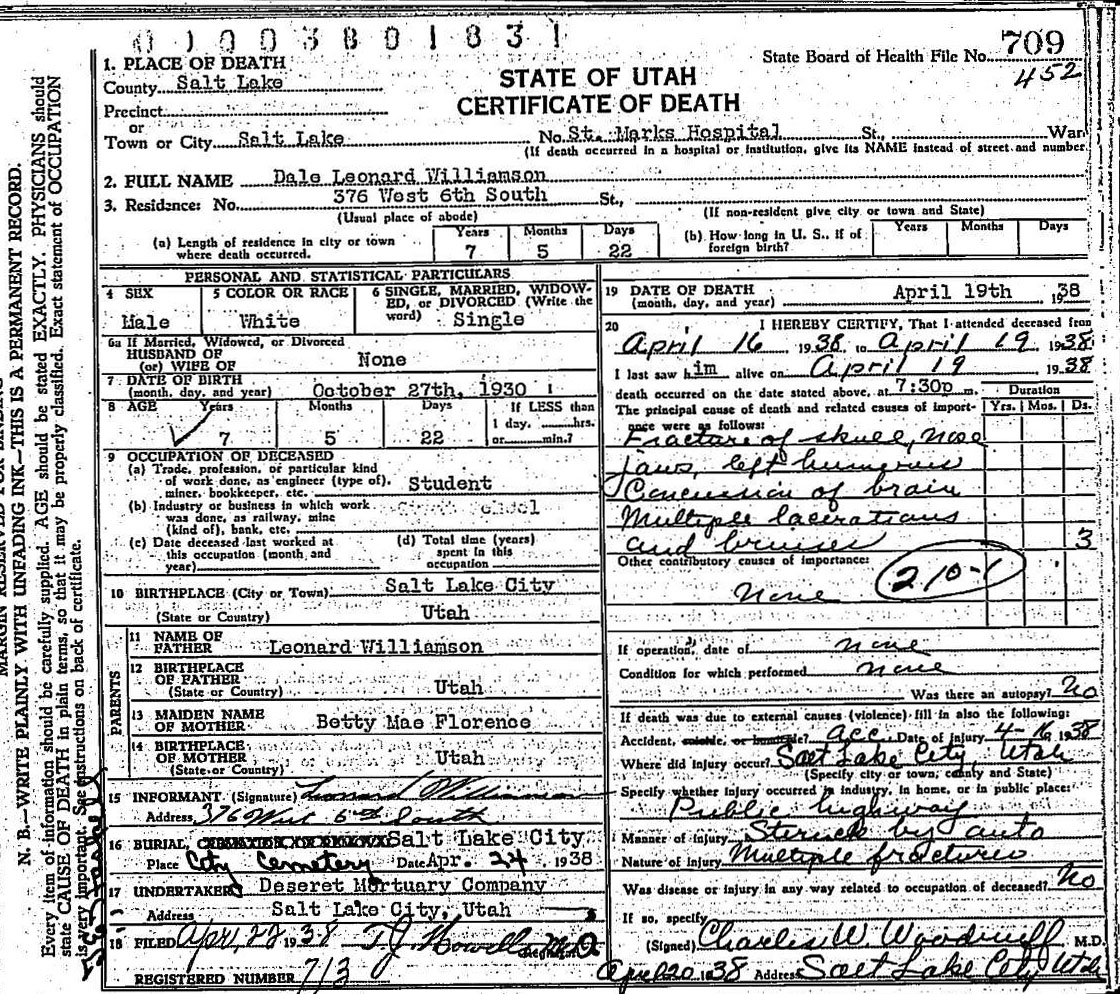 01003801831
State Board of Health File No. 709
452
STATE OF UTAH
CERTIFICATE OF DEATH
1. PLACE OF DEATH
County Salt Lake
Precinct
or
Town or City Salt Lake No. St. Marks Hospital St., War
(If death occurred in a hospital or institution, give its NAME instead of street and number
2. FULL NAME Dale Leonard Williamson
3. Residence: No. 376 West 6th South St.,
(Usual place of abode) (If non-resident give city or town and State)
(a) Length of residence in city or town where death occurred. Years 7 Months 5 Days 22
(b) How long in U. S., if of foreign birth? Years Months Days
PERSONAL AND STATISTICAL PARTICULARS
4 SEX Male
5 COLOR OR RACE White
6 SINGLE, MARRIED, WIDOWED, or DIVORCED (Write the word) Single
6a If Married, Widowed, or Divorced
HUSBAND OF
(or) WIFE OF None
7 DATE OF BIRTH
(month, day, and year) October 27th, 1930
8 AGE Years 7 Months 5 Days 22 If LESS than 1 day, hrs. or min.?
9 OCCUPATION OF DECEASED
(a) Trade, profession, or particular kind
of work done, as engineer (type of),
miner, bookkeeper, etc. Student
(b) Industry or business in which work
was done, as railway, mine
(kind of), bank, etc. School
(c) Date deceased last worked at
this occupation (month and
year)
(d) Total time (years)
spent in this
occupation
10 BIRTHPLACE (City or Town) Salt Lake City
(State or Country) Utah
PARENTS
11 NAME OF
FATHER Leonard Williamson
12 BIRTHPLACE
OF FATHER
(State or Country) Utah
13 MAIDEN NAME
OF MOTHER Betty Mae Florence
14 BIRTHPLACE
OF MOTHER
(State or Country) Utah
15 INFORMANT (Signature) Leonard Williamson
Address 376 West 6th South
16 BURIAL, Salt Lake City
Place City Cemetery Date Apr. 24, 1938
17 UNDERTAKER Deseret Mortuary Company
Address Salt Lake City, Utah
18 FILED Apr, 22 1938 T. J. Howells M.D.
REGISTERED NUMBER 713
19 DATE OF DEATH
(month, day, and year) April 19th 1938
20 I HEREBY CERTIFY, That I attended deceased from
April 16 1938 to April 19 1938
I last saw him alive on April 19 1938
death occurred on the date stated above, at 7:30p m.
Duration
Yrs. Mos. Ds.
The principal cause of death and related causes of importance were as follows:
Fracture of skull, nose
jaws, left humerus
Concussion of brain
Multiple lacerations
and bruises 3
Other contributory causes of importance:
210-1
None
If operation, date of none
Condition for which performed none
Was there an autopsy? No
If death was due to external causes (violence) fill in also the following:
Accident, suicide, or homicide? acc. Date of injury 4-16 1938
Where did injury occur? Salt Lake City, Utah
(Specify city or town, county and State)
Specify whether injury occurred in industry, in home, or in public place:
Public highway
Manner of injury Struck by auto
Nature of injury Multiple fractures
Was disease or injury in any way related to occupation of deceased? No
If so, specify
(Signed) Charles W Woodruff M.D.
April 20 1938 Address Salt Lake City Utah
MARGIN RESERVED FOR BINDING
N. B.—WRITE PLAINLY WITH UNFADING INK—THIS IS A PERMANENT RECORD.
Every item of information should be carefully supplied. AGE should be stated EXACTLY. PHYSICIANS should
state CAUSE OF DEATH in plain terms, so that it may be properly classified. Exact statement of OCCUPATION
is very important. See instructions on back of certificate.